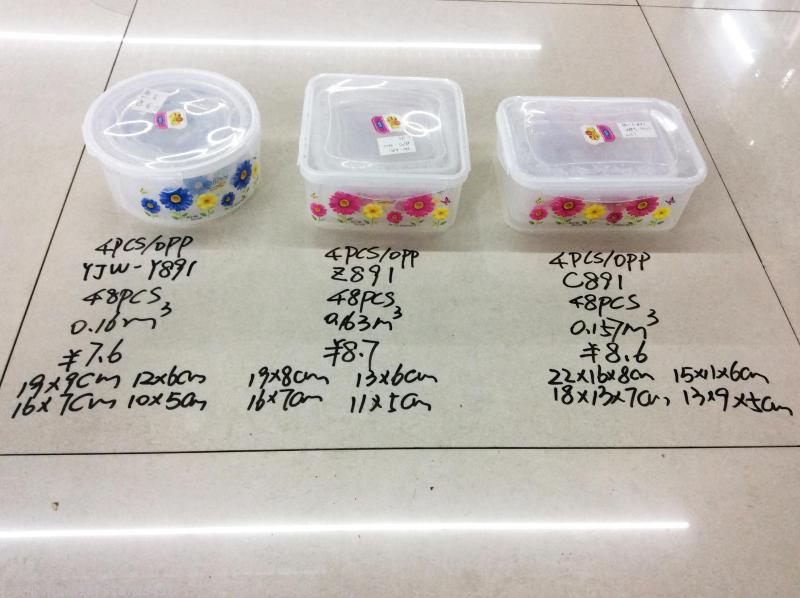 4PCS/OPP
YJW-Y891
48PCS
0.16m³
¥7.6
19×9cm 12×6cm
16×7cm 10×5cm
4PCS/OPP
Z891
48PCS
0.163m³
¥8.7
19×8cm 13×6cm
16×7cm 11×5cm
4PCS/OPP
C891
48PCS
0.157m³
¥8.6
22×16×8cm 15×11×6cm
18×13×7cm, 13×9×5cm